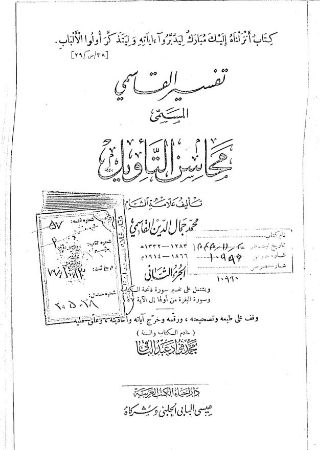 كتاب أنزلناه إليك مبارك ليدبروا آياته وليتذكر أولوا الألباب.
[٣٨/ص/٢٩]
تفسير القاسمي
المسمى
محاسن التأويل
تأليف علامة الشام
محمد جمال الدين القاسمي
١٢٨٣ - ١٣٣٢ هـ
١٨٦٦ - ١٩١٤ م
الجزء الثاني
ويشتمل على تفسير سورة فاتحة الكتاب
وسورة البقرة من أولها إلى الآية
وقف على طبعه وتصحيحه، ورقمه وخرج آياته وأحاديثه، وعلق عليه
خادم الكتاب والسنة
محمد فؤاد عبد الباقي
دار إحياء الكتب العربية
عيسى البابي الحلبي وشركاه
٥٧
١٠٩٦٠